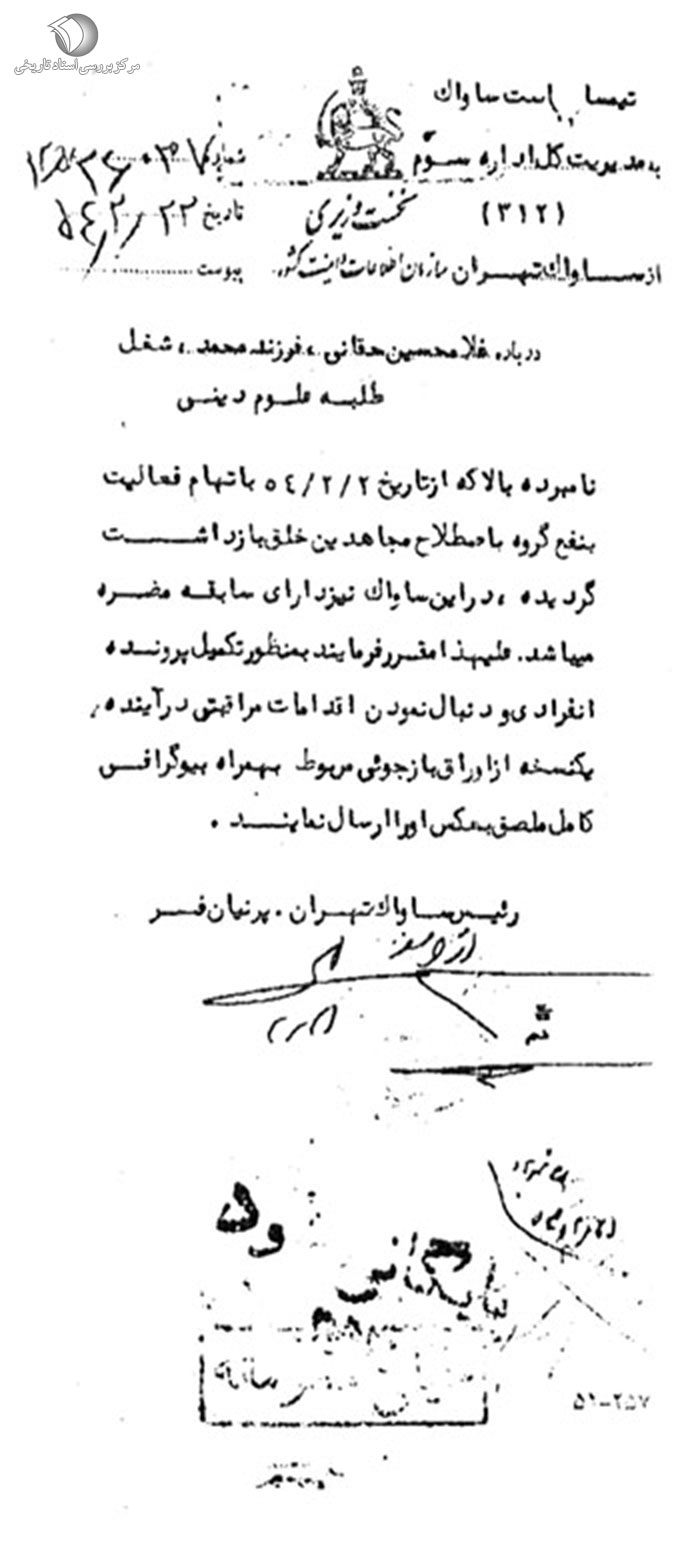 مرکز بررسی اسناد تاریخی
تیمسار ریاست ساواک
به مدیریت کل اداره سوم
شماره
(۳۱۲)
نخست وزیری
تاریخ ۵٤/۲/۲۲
از ساواک تهران
سازمان اطلاعات و امنیت کشور
پیوست
درباره غلامحسین حقانی، فرزند محمد، شغل
طلبه علوم دینی
نامبرده بالا که از تاریخ ۵٤/۲/۲ باتهام فعالیت
بنفع گروه باصطلاح مجاهدین خلق بازداشت
گردیده، در این ساواک نیز دارای سابقه مضره
میباشد. علیهذا مقرر فرمایند بمنظور تکمیل پرونده
انفرادی و دنبال نمودن اقدامات مراقبتی در آینده،
یکنسخه از اوراق بازجوئی مربوط بهمراه بیوگرافی
کامل ملصق بعکس او را ارسال نمایند.
رئیس ساواک تهران. پرنیان فر
قم
بایگانی
۵۱-۲۵۷